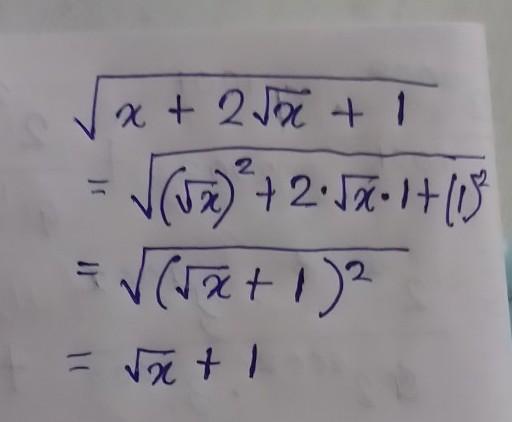 √(x + 2√x + 1)
= √((√x)² + 2·√x·1 + (1)²)
= √((√x + 1)²)
= √x + 1